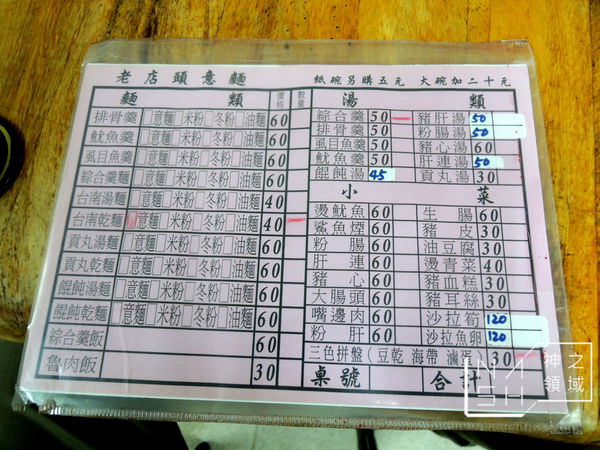 老店頭意麵　紙碗另購五元　大碗加二十元
麵類　價格　數量
排骨羹 □意麵□米粉□冬粉□油麵 60
魷魚羹 □意麵□米粉□冬粉□油麵 60
虱目魚羹 □意麵□米粉□冬粉□油麵 60
綜合羹麵 □意麵□米粉□冬粉□油麵 60
台南湯麵 □意麵□米粉□冬粉□油麵 40
台南乾麵 □意麵□米粉□冬粉□油麵 40
貢丸湯麵 □意麵□米粉□冬粉□油麵 60
貢丸乾麵 □意麵□米粉□冬粉□油麵 60
餛飩湯麵 □意麵□米粉□冬粉□油麵 60
餛飩乾麵 □意麵□米粉□冬粉□油麵 60
綜合羹飯 60
魯肉飯 30
湯類
綜合羹 50　豬肝湯 50
排骨羹 50　粉腸湯 50
虱目魚羹 50　豬心湯 60
魷魚羹 50　肝連湯 50
餛飩湯 45　貢丸湯 30
小菜
燙魷魚 60　生腸 60
鯊魚煙 60　豬皮 30
粉腸 60　油豆腐 30
肝連 60　燙青菜 40
豬心 60　豬血糕 30
大腸頭 60　豬耳絲 30
嘴邊肉 60　沙拉筍 120
粉肝 60　沙拉魚卵 120
三色拼盤(豆乾 海帶 滷蛋) 30
桌號　合計
神之領域